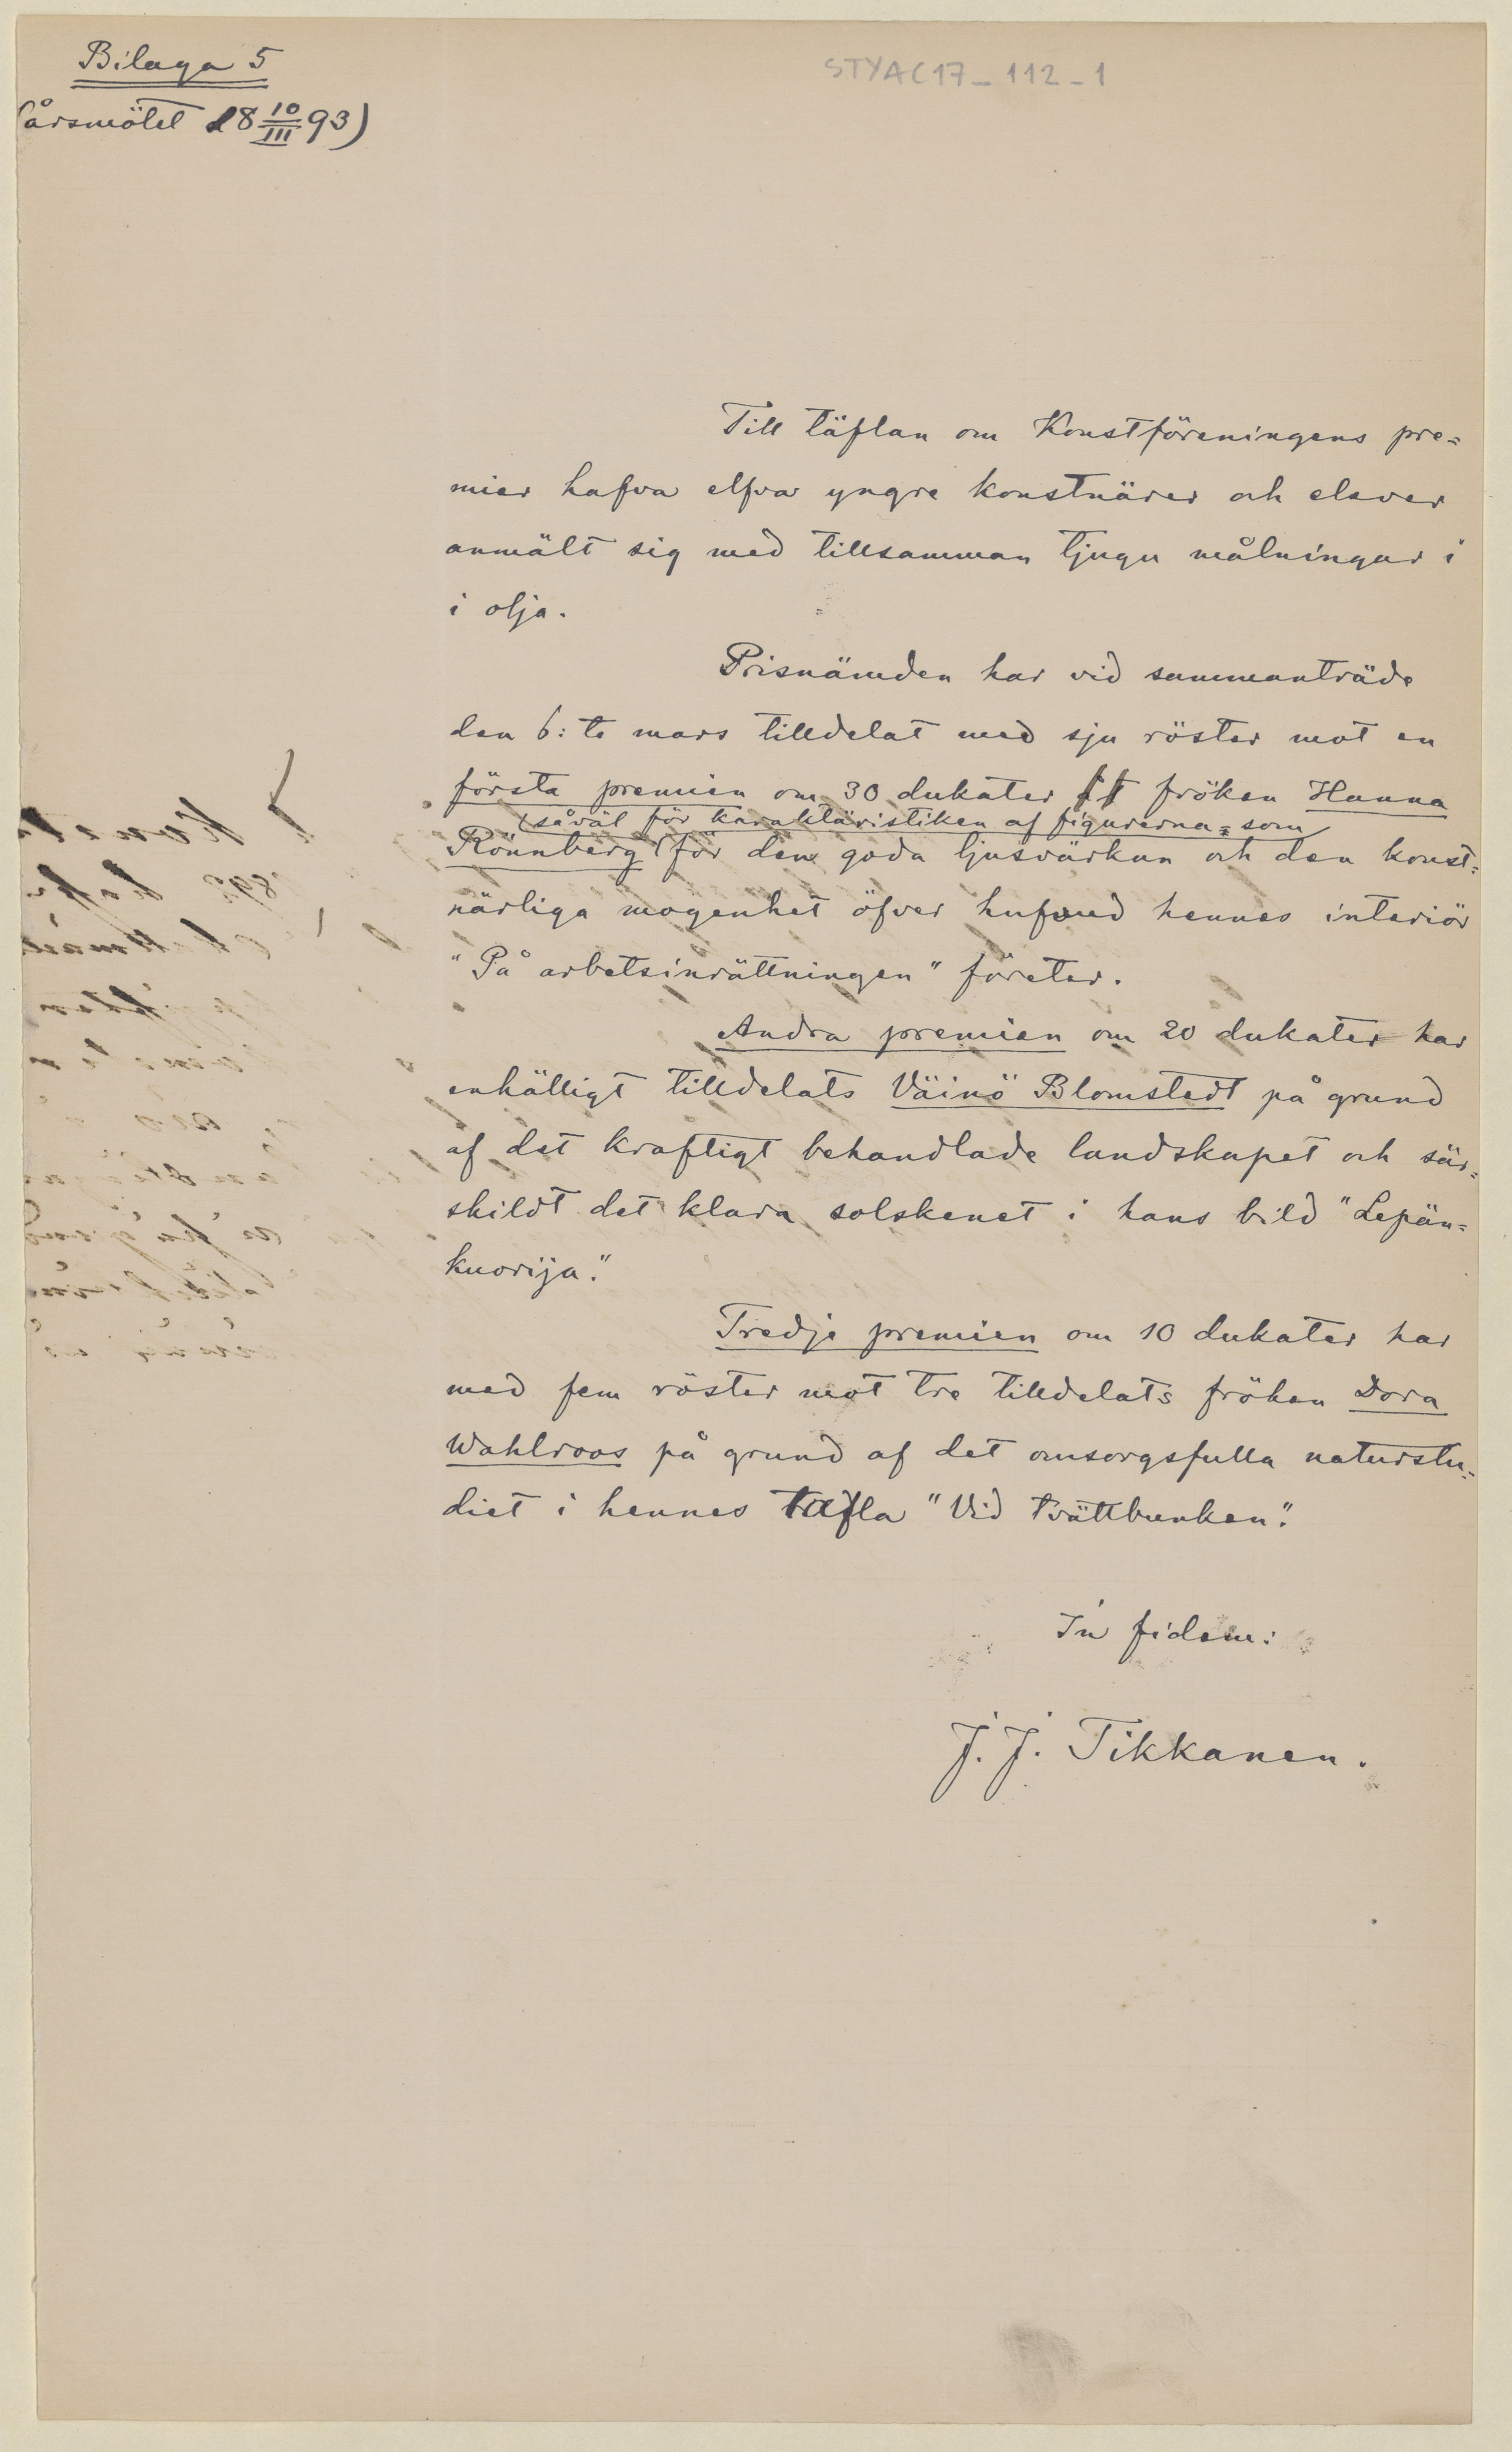 Bilaga 5
STYA C17_112_1
(årsmötet 18 10/III 93)
Till täflan om Konstföreningens pre=
mier hafva elfva yngre konstnärer och elever
anmält sig med tillsamman tjugu målningar i
i olja.
Prisnämden har vid sammanträde
den 6:te mars tilldelat med sju röster mot en
första premien om 30 dukater fröken Hanna
såväl för karaktäristiken af figurerna som
Rönnberg för den goda ljusvärkan och den konst=
närliga mogenhet öfver hufvud hennes interiör
"På arbetsinrättningen" företer.
Andra premien om 20 dukater har
enhälligt tilldelats Väinö Blomstedt på grund
af det kraftigt behandlade landskapet och sär=
skildt det klara solskenet i hans bild "Lepän=
kuorija."
Tredje premien om 10 dukater har
med fem röster mot tre tilldelats fröken Dora
Wahlroos på grund af det omsorgsfulla naturstu=
diet i hennes tafla "Vid tvättbunken."
In fidem:
J. J. Tikkanen.